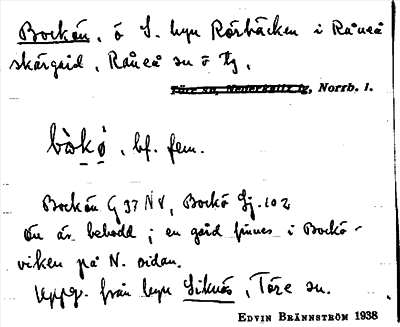 Bockön, ö S. byn Rörbäcken i Råneå
skärgård, Råneå sn o tg,
Töre sn, Nederkalix tg, Norrb. l.
bòkö̀, bf. fem.
Bockön G 37 NV, Bockö Gj. 102
Ön är bebodd; en gård finnes i Bockö-
viken på N. sidan.
Uppg. från byn Siknäs, Töre sn.
EDVIN BRÄNNSTRÖM 1938